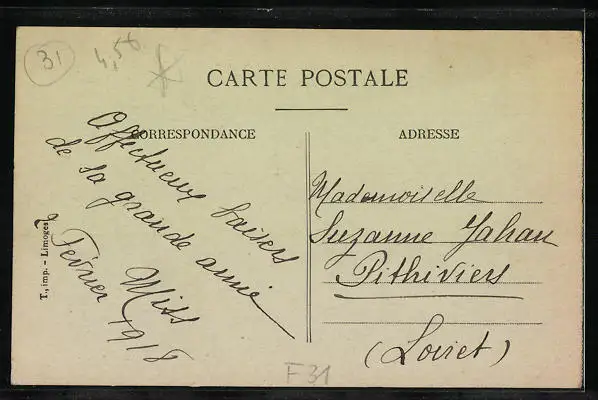 31
4,50
CARTE POSTALE
CORRESPONDANCE
ADRESSE
Affectueux baisers
de sa grande amie
Miss
2 Février 1918
T., imp. - Limoges
Mademoiselle
Suzanne Jahan
Pithiviers
(Loiret)
F31